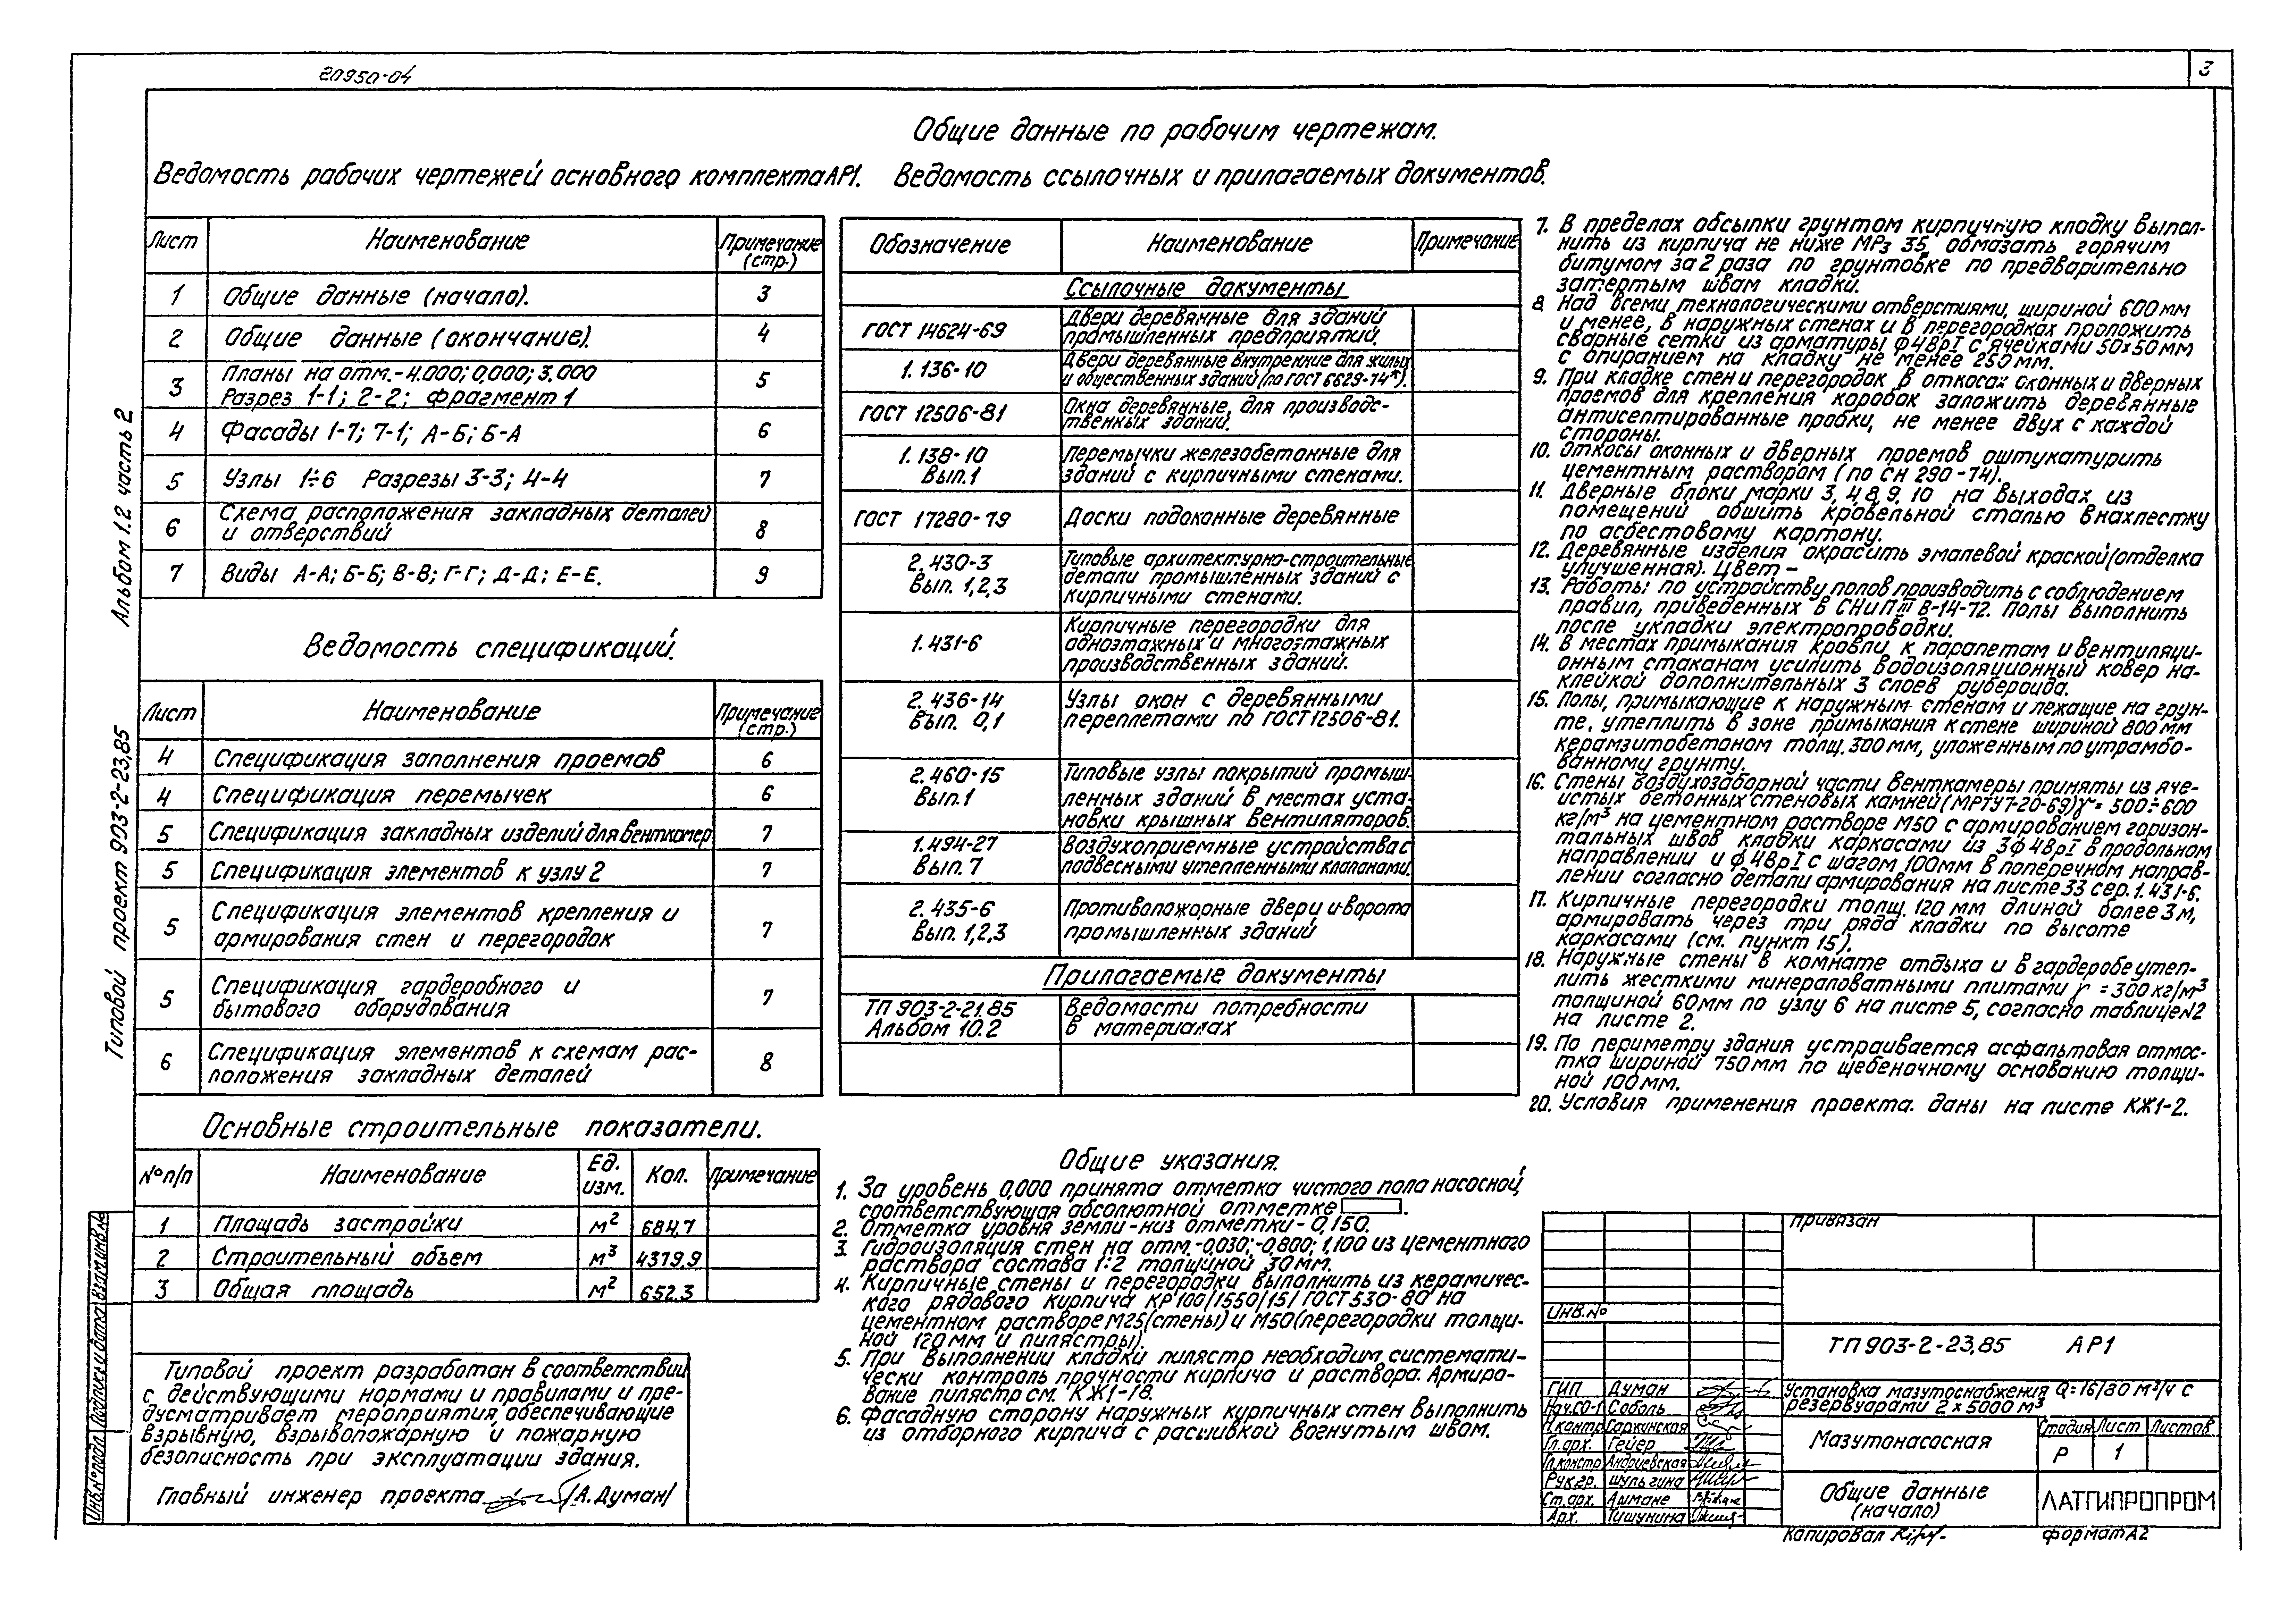 20950-04
3
Общие данные по рабочим чертежам.
Ведомость рабочих чертежей основного комплекта АР1.
Лист Наименование Примечание (стр.)
1 Общие данные (начало). 3
2 Общие данные (окончание). 4
3 Планы на отм.-4.000; 0,000; 3.000
Разрез 1-1; 2-2; фрагмент 1 5
4 Фасады 1-7; 7-1; А-Б; Б-А 6
5 Узлы 1÷6 Разрезы 3-3; 4-4 7
6 Схема расположения закладных деталей
и отверствий 8
7 Виды А-А; Б-Б; В-В; Г-Г; Д-Д; Е-Е. 9
Ведомость спецификаций.
Лист Наименование Примечание (стр.)
4 Спецификация заполнения проемов 6
4 Спецификация перемычек 6
5 Спецификация закладных изделий для венткамер 7
5 Спецификация элементов к узлу 2 7
5 Спецификация элементов крепления и
армирования стен и перегородок 7
5 Спецификация гардеробного и
бытового оборудования 7
6 Спецификация элементов к схемам рас-
положения закладных деталей 8
Основные строительные показатели.
№ п/п Наименование Ед. изм. Кол. Примечание
1 Площадь застройки м² 684,7
2 Строительный объем м³ 4379,9
3 Общая площадь м² 652.3
Типовой проект разработан в соответствии
с действующими нормами и правилами и пре-
дусматривает мероприятия, обеспечивающие
взрывную, взрывопожарную и пожарную
безопасность при эксплуатации здания.
Главный инженер проекта /А.Думан/
Ведомость ссылочных и прилагаемых документов.
Обозначение Наименование Примечание
Ссылочные документы
ГОСТ 14624-69 Двери деревянные для зданий
промышленных предприятий.
1.136-10 Двери деревянные внутренние для жилых
и общественных зданий (по ГОСТ 6629-74*).
ГОСТ 12506-81 Окна деревянные, для производс-
твенных зданий.
1.138-10 Вып.1 Перемычки железобетонные для
зданий с кирпичными стенами.
ГОСТ 17280-79 Доски подоконные деревянные
2.430-3 Вып. 1,2,3 Типовые архитектурно-строительные
детали промышленных зданий с
кирпичными стенами.
1.431-6 Кирпичные перегородки для
одноэтажных и многоэтажных
производственных зданий.
2.436-14 Вып. 0,1 Узлы окон с деревянными
переплетами по ГОСТ 12506-81.
2.460-15 Вып.1 Типовые узлы покрытий промыш-
ленных зданий в местах уста-
новки крышных вентиляторов.
1.494-27 Вып. 7 Воздухоприемные устройства с
подвесными утепленными клапанами.
2.435-6 Вып. 1,2,3 Противопожарные двери и ворота
промышленных зданий
Прилагаемые документы
ТП 903-2-21.85 Альбом 10.2 Ведомости потребности
в материалах
Общие указания.
1. За уровень 0,000 принята отметка чистого пола насосной,
соответствующая абсолютной отметке .
2. Отметка уровня земли-низ отметки - 0,150.
3. Гидроизоляция стен на отм.-0,030; -0,800; 1,100 из цементного
раствора состава 1:2 толщиной 30мм.
4. Кирпичные стены и перегородки выполнить из керамичес-
кого рядового кирпича КР100/1550/15/ ГОСТ 530-80 на
цементном растворе М25(стены) и М50(перегородки толщи-
ной 120мм и пилястры).
5. При выполнении кладки пилястр необходим системати-
чески контроль прочности кирпича и раствора. Армиро-
вание пилястр см. КЖ1-18.
6. Фасадную сторону наружных кирпичных стен выполнить
из отборного кирпича с расшивкой вогнутым швом.
7. В пределах обсыпки грунтом кирпичную кладку выпол-
нить из кирпича не ниже Мрз 35, обмазать горячим
битумом за 2 раза по грунтовке по предварительно
затертым швам кладки.
8. Над всеми технологическими отверстиями, шириной 600мм
и менее, в наружных стенах и в перегородках проложить
сварные сетки из арматуры ф4ВрI с ячейками 50х50мм
с опиранием на кладку не менее 250мм.
9. При кладке стен и перегородок в откосах оконных и дверных
проемов для крепления коробок заложить деревянные
антисептированные пробки, не менее двух с каждой
стороны.
10. Откосы оконных и дверных проемов оштукатурить
цементным раствором (по СН 290-74).
11. Дверные блоки марки 3, 4 8, 9, 10 на выходах из
помещений обшить кровельной сталью внахлестку
по асбестовому картону.
12. Деревянные изделия окрасить эмалевой краской(отделка
улучшенная). Цвет –
13. Работы по устройству полов производить с соблюдением
правил, приведенных в СНиП III В-14-72. Полы выполнить
после укладки электропроводки.
14. В местах примыкания кровли к парапетам и вентиляци-
онным стаканам усилить водоизоляционный ковер на-
клейкой дополнительных 3 слоев рубероида.
15. Полы, примыкающие к наружным стенам и лежащие на грун-
те, утеплить в зоне примыкания к стене шириной 800мм
керамзитобетоном толщ. 300мм, уложенным по утрамбо-
ванному грунту.
16. Стены воздухозаборной части венткамеры приняты из яче-
истых бетонных стеновых камней (МРТУ7-20-69)γ= 500÷600
кг/м³ на цементном растворе М50 с армированием горизон-
тальных швов кладки каркасами из 3ф4ВрI в продольном
направлении и ф4ВрI с шагом 100мм в поперечном направ-
лении согласно детали армирования на листе 33 сер. 1.431-6.
17. Кирпичные перегородки толщ. 120мм длиной более 3м,
армировать через три ряда кладки по высоте
каркасами (см. пункт 15).
18. Наружные стены в комнате отдыха и в гардеробе утеп-
лить жесткими минераловатными плитами γ = 300кг/м³
толщиной 60мм по узлу 6 на листе 5, согласно таблице№2
на листе 2.
19. По периметру здания устраивается асфальтовая отмос-
тка шириной 750мм по щебеночному основанию толщи-
ной 100мм.
20. Условия применения проекта. даны на листе КЖ1-2.
Привязан
Инв.№
ТП 903-2-23,85 АР1
Установка мазутоснабжения Q=16/80 м³/ч с
резервуарами 2х5000 м³
ГИП Думан
Нач.СО-1 Соболь
Н.контр Гаркунская
Гл.арх. Гейер
Гл.констр Андриевская
Рук.гр. Шульгина
Ст.арх. Ашмане
Арх. Тишунина
Мазутонасосная
Стадия Лист Листов
Р 1
Общие данные
(начало)
ЛАТГИПРОПРОМ
Копировал
формат А2
Типовой проект 903-2-23,85 Альбом 1.2 часть 2
Инв.№подл. Подпись и дата Взам.инв.№